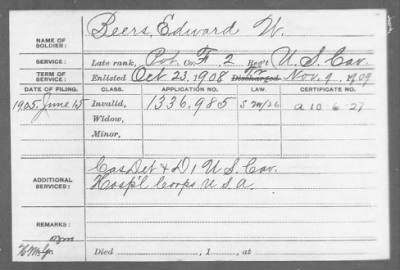 NAME OF SOLDIER: Beers, Edward W.
SERVICE: Late rank, Pvt. Co. F, 2 Reg't U.S. Cav.
TERM OF SERVICE: Enlisted Oct 23, 1908 Discharged Nov. 9, 1909
DATE OF FILING. CLASS. APPLICATION NO. LAW. CERTIFICATE NO.
1925. June 15 Invalid, 1336,985
Widow,
Minor,
ADDITIONAL SERVICES: Cas Det & D 1 U S Cav.
Hosp'l Corps U S A
REMARKS:
Died , 1 , at